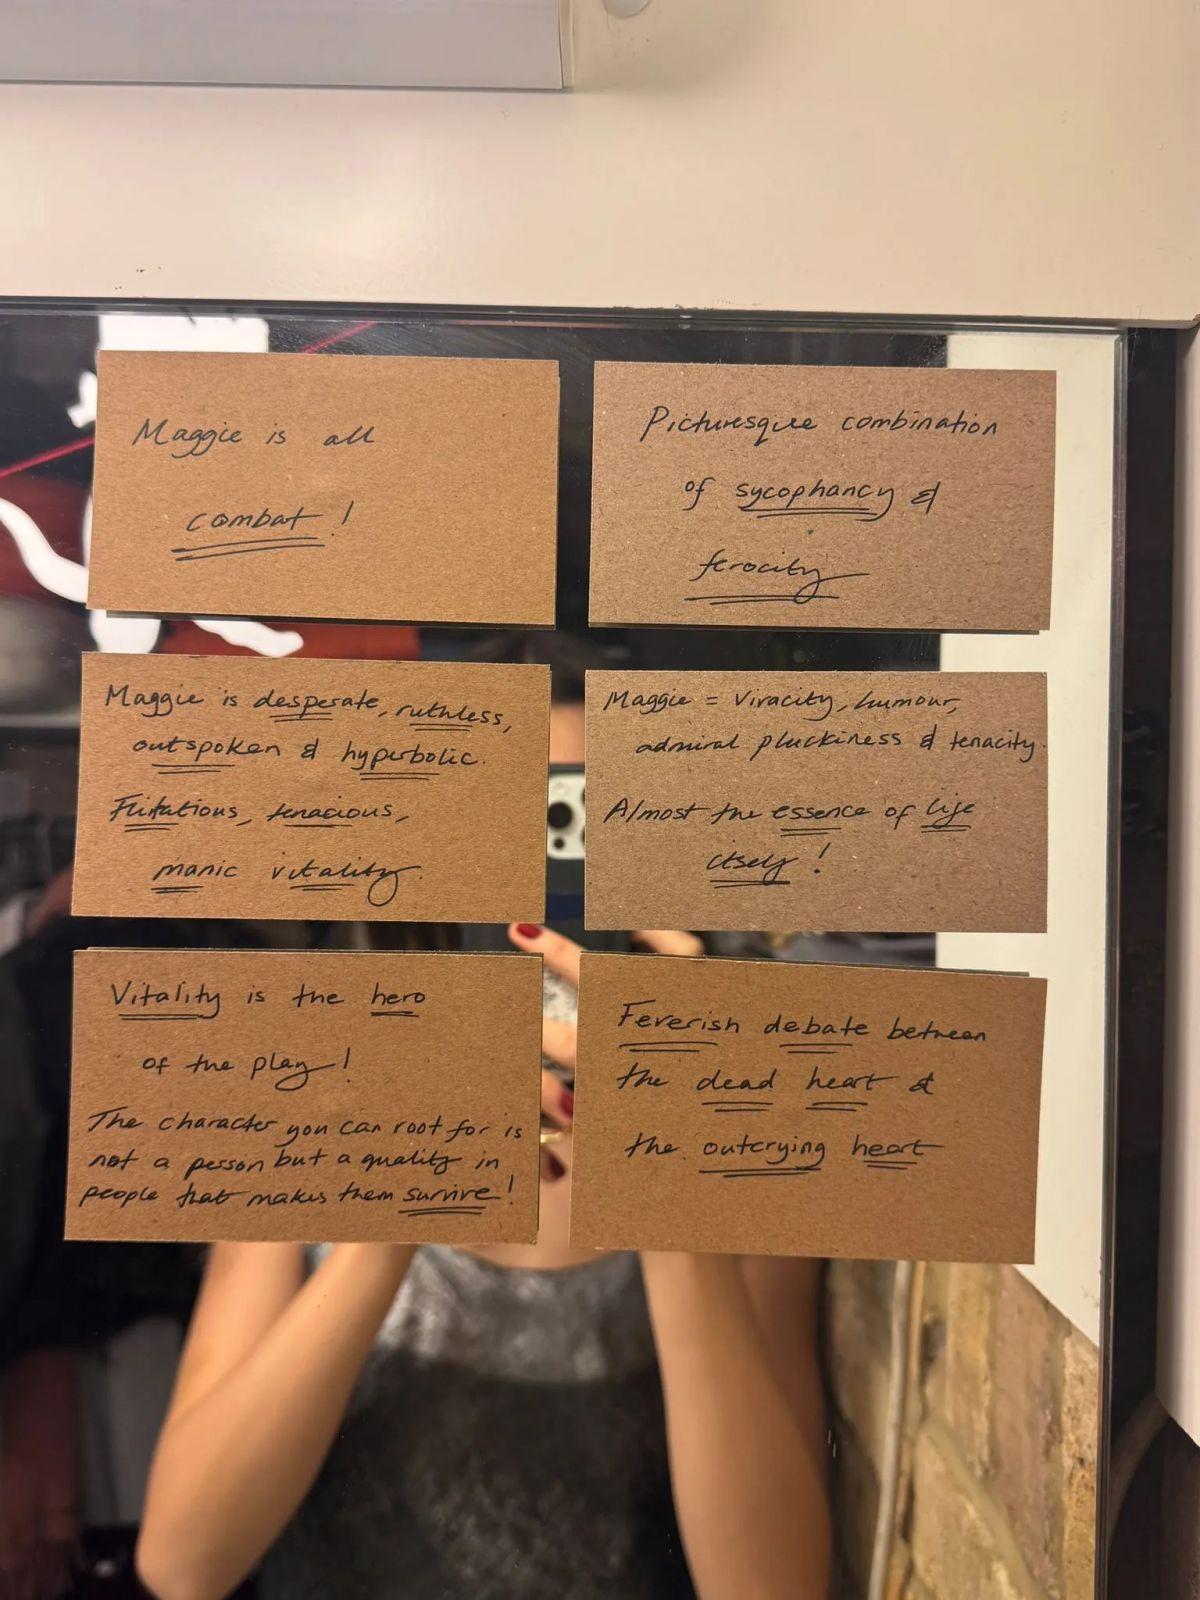 Maggie is all
combat!
Picturesque combination
of sycophancy &
ferocity
Maggie is desperate, ruthless,
outspoken & hyperbolic.
Flirtatious, tenacious,
manic vitality.
Maggie = Vivacity, humour,
admiral pluckiness & tenacity.
Almost the essence of life
itself!
Vitality is the hero
of the play!
The character you can root for is
not a person but a quality in
people that makes them survive!
Feverish debate between
the dead heart &
the outcrying heart